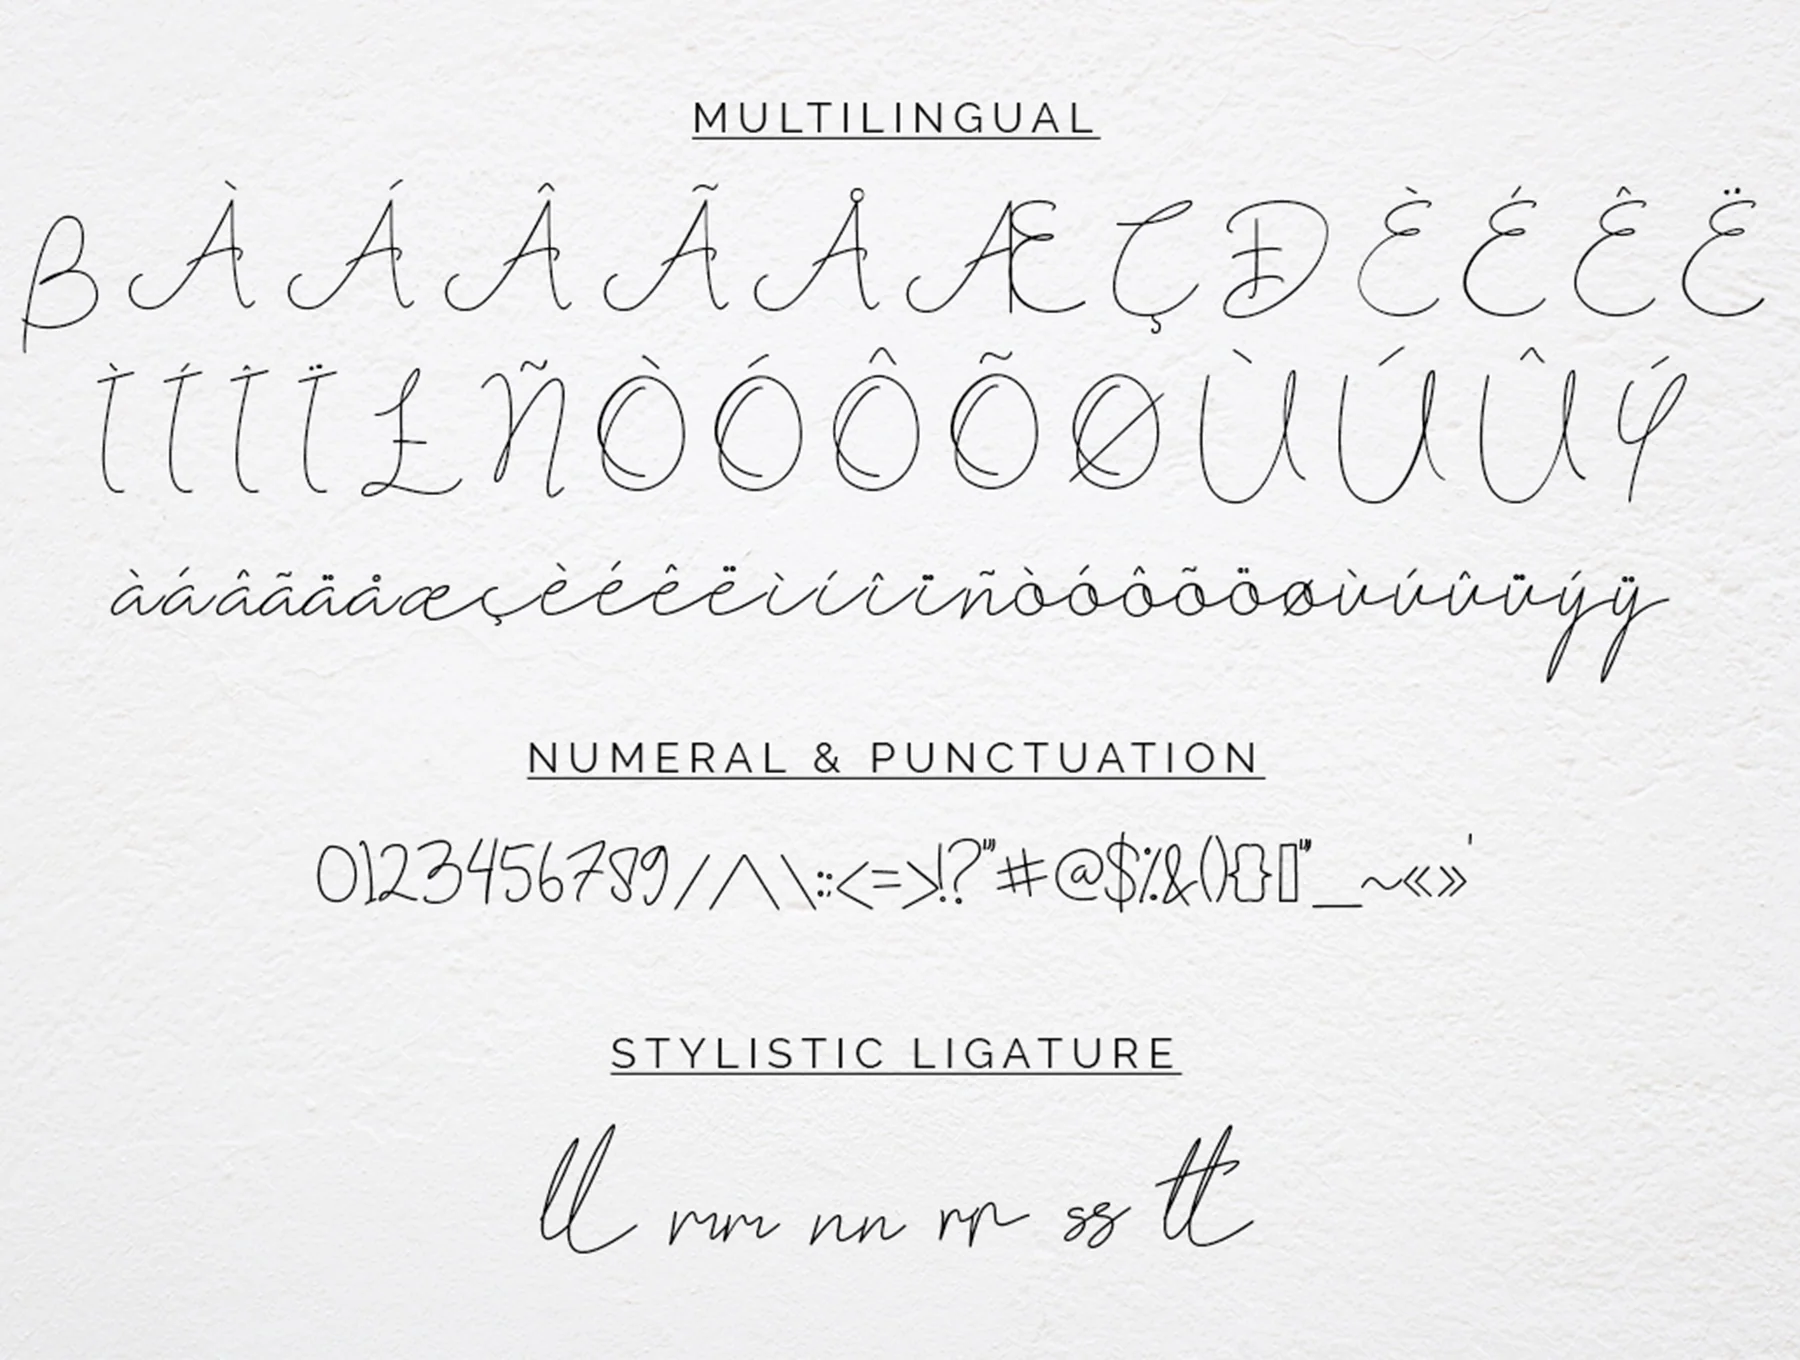 MULTILINGUAL
ß À Á Â Ã Å Æ Ç Đ È É Ê Ë
Ì Í Î Ï £ Ñ Ò Ó Ô Õ Ø Ù Ú Û Ý
àáâãäåæçèéêëìíîïñòóôõöøùúûüýÿ
NUMERAL & PUNCTUATION
0123456789/^\:;<=>!?"#@$%&(){}[]"_~«»'
STYLISTIC LIGATURE
ll mm nn rr ss tt